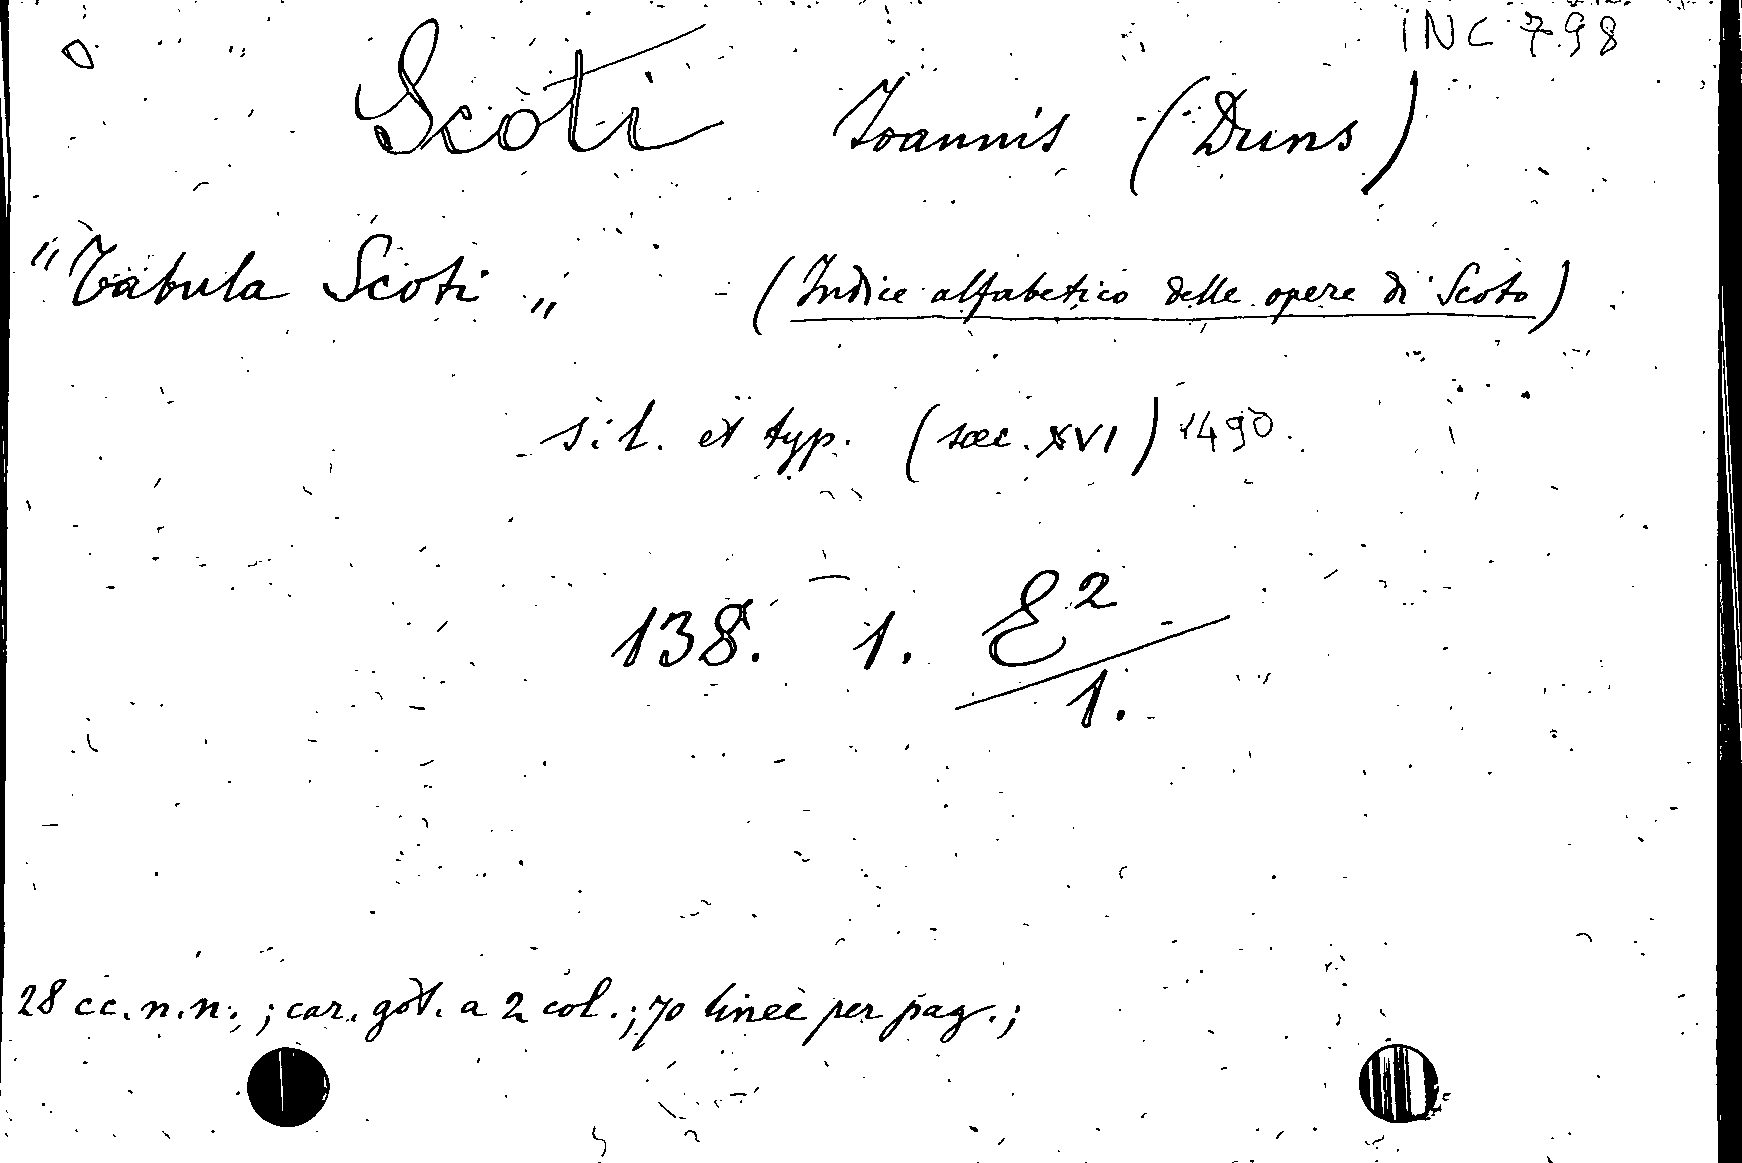 INC 798
Scoti Ioannis (Duns)
"Tabula Scoti „ (Indice alfabetico delle opere di Scoto)
s. l. et typ. (sæc. XVI) 1490.
138. 1. E²
1.
28 cc. n. n. ; car. got. a 2 col. ; 70 linee per pag. ;